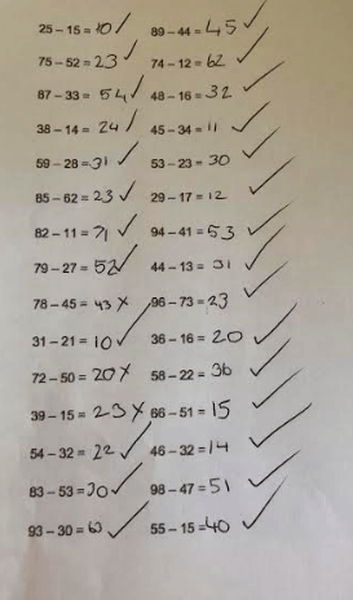 25 – 15 = 10 ✓ 89 – 44 = 45 ✓
75 – 52 = 23 ✓ 74 – 12 = 62 ✓
87 – 33 = 54 ✓ 48 – 16 = 32 ✓
38 – 14 = 24 ✓ 45 – 34 = 11 ✓
59 – 28 = 31 ✓ 53 – 23 = 30 ✓
85 – 62 = 23 ✓ 29 – 17 = 12 ✓
82 – 11 = 71 ✓ 94 – 41 = 53 ✓
79 – 27 = 52 ✓ 44 – 13 = 31 ✓
78 – 45 = 43 X 96 – 73 = 23 ✓
31 – 21 = 10 ✓ 36 – 16 = 20 ✓
72 – 50 = 20 X 58 – 22 = 36 ✓
39 – 15 = 23 X 66 – 51 = 15 ✓
54 – 32 = 22 ✓ 46 – 32 = 14 ✓
83 – 53 = 30 ✓ 98 – 47 = 51 ✓
93 – 30 = 63 ✓ 55 – 15 = 40 ✓